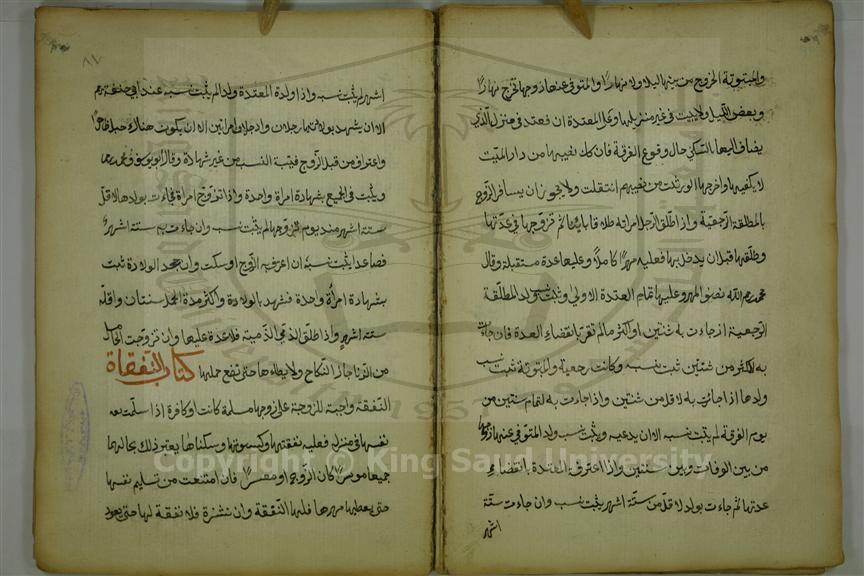 والمبتوتة الخروج من بيتها ليلا ولا نهارا والمتوفى عنها زوجها تخرج نهارا
وبعض الليل ولا يبيت في غير منزلها وعلى المعتدة ان تعتد في منزل الذي
يضاف اليها السكنى حال وقوع الفرقة فان كان نصيبها من دار الميت
لا يكفيها واخرجها الورثة من نصيبهم انتقلت ولا يجوز ان يسافر الزوج
بالمطلقة الرجعية واذا طلق الرجل امراته طلاقا باينا ثم تزوجها في عدتها
وطلقها قبل ان يدخل بها فعليه مهرا كاملا وعليها عدة مستقبلة وقال
محمد رحم الله نصف المهر وعليها تمام العدة الاولى ويثبت نسب ولد المطلقة
الرجعية اذ جاءت به سنتين او اكثر مالم تقر بانقضاء العدة فان جاءت
به لاكثر من سنتين ثبت نسبه وكانت رجعية والمبتوتة ثبت نسب
ولدها اذا جائت به لاقل من سنتين واذا جاءت به لتمام سنتين من
يوم الفرقة لم يثبت نسبه الا ان يدعيه ويثبت نسب ولد المتوفى عنها زوجها
من بين الوفات وبين سنتين واذا اعترف المعتدة بانقضاء
عدتها ثم جاءت بولد لاقل من ستة اشهر يثبت نسب وان جاءت ستة
اشهر
٨٧
اشهر لم يثبت نسبه واذا ولدة المعتدة ولدا لم يثبت نسبه عند ابي حنيفة رحم
الا ان يشهد بولادتها رجلان او رجل وامراتين الا ان يكون هناك حبلا ظاهرا
واعتراف من قبل الزوج فيثبة النسب من غير شهادة وقال ابو يوسف ومحمد رحم
ويثبت في الجميع بشهادة امراة واحدة واذا تزوج امراة فجاءت بولد لاقل
ستة اشهر منذ يوم تزوجها لم يثبت نسبه وان جاءت به ستة اشهر
فصاعدا يثبت نسبه ان اعترف به الزوج او سكت وان جحد الولادة ثبت
بشهادة امرأة واحدة تشهد بالولادة واكثر مدة الحمل سنتان واقله
ستة اشهر واذا طلق الذمي الذمية فلا عدة عليها وان تزوجت الحامل
من الزنا جاز النكاح ولا يطاءها حتى تضع حملها كتاب النفقاة
النفقة واجبة للزوجة على زوجها مسلمة كانت او كافرة اذا سلمت
نفسها في منزله فعليه نفقتها وكسوتها وسكناها يعتبر ذلك بحالهما
جميعا موسرا كان الزوج او معسرا فان امتنعت من تسليم نفسها
حتى يعطيها مهرها فلها النفقة وان نشزة فلا نفقة لها حتى يعود
Copyright © King Saud University
1957